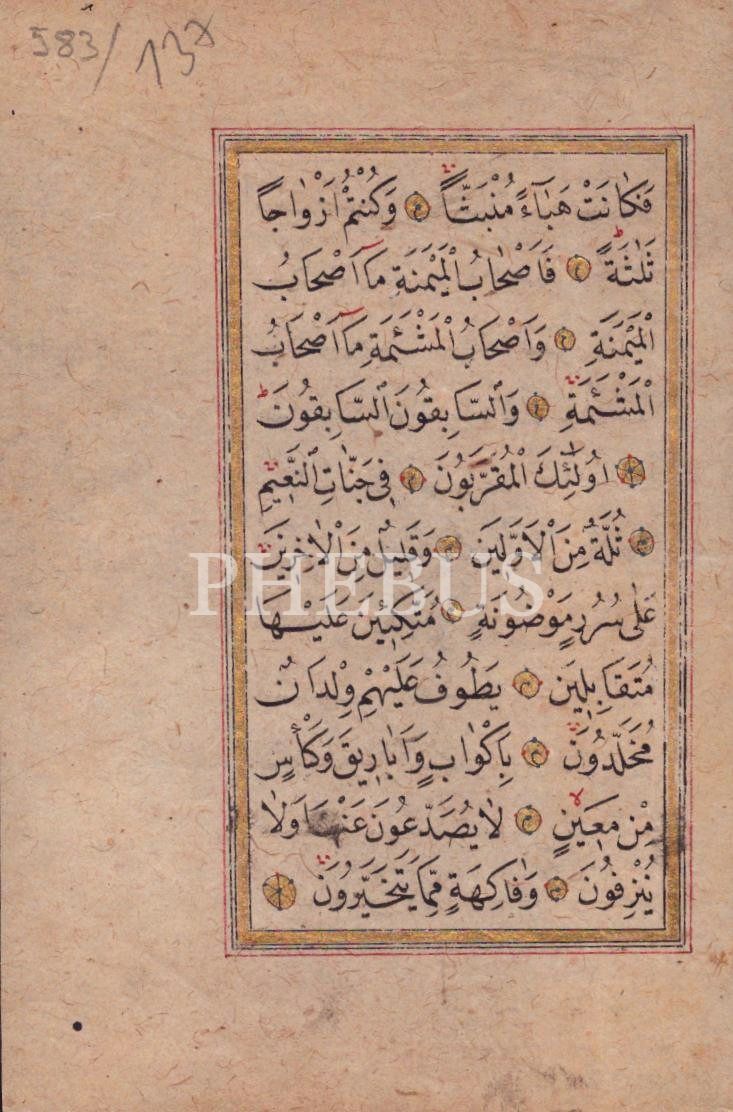 583/13x
فَكَانَتْ هَبَآءً مُنْبَثًّا وَكُنْتُمْ اَزْوَاجًا
ثَلٰثَةً فَاَصْحَابُ الْمَيْمَنَةِ مَٓا اَصْحَابُ
الْمَيْمَنَةِ وَاَصْحَابُ الْمَشْئَمَةِ مَٓا اَصْحَابُ
الْمَشْئَمَةِ وَالسَّابِقُونَ السَّابِقُونَ
اُولٰٓئِكَ الْمُقَرَّبُونَ فِى جَنَّاتِ النَّعِيمِ
ثُلَّةٌ مِنَ الْاَوَّلِينَ وَقَلِيلٌ مِنَ الْاٰخِرِينَ
PHEBUS
عَلٰى سُرُرٍ مَوْضُونَةٍ مُتَّكِئِينَ عَلَيْهَا
مُتَقَابِلِينَ يَطُوفُ عَلَيْهِمْ وِلْدَانٌ
مُخَلَّدُونَ بِاَكْوَابٍ وَاَبَارِيقَ وَكَأْسٍ
مِنْ مَعِينٍ لَا يُصَدَّعُونَ عَنْهَا وَلَا
يُنْزِفُونَ وَفَاكِهَةٍ مِمَّا يَتَخَيَّرُونَ